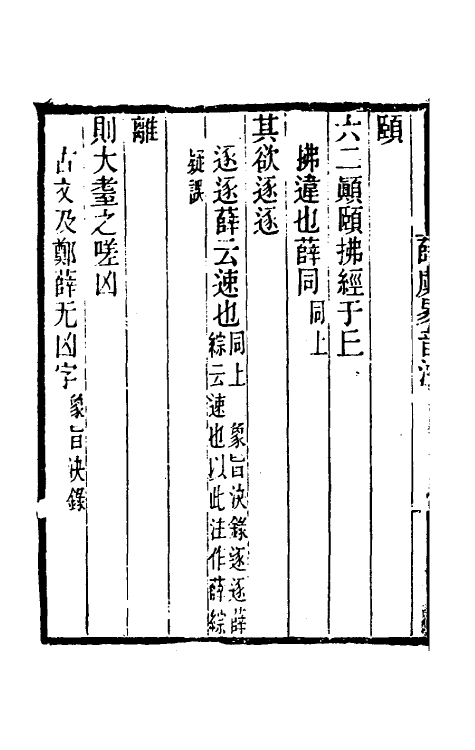 頤
六二顚頤拂經于丘
拂違也薛同同上
其欲逐逐
逐逐薛云速也同上　象旨決錄逐逐薛
綜云速也以此注作薛綜
疑誤
離
則大耋之嗟凶
古文及鄭薛无凶字象旨決錄